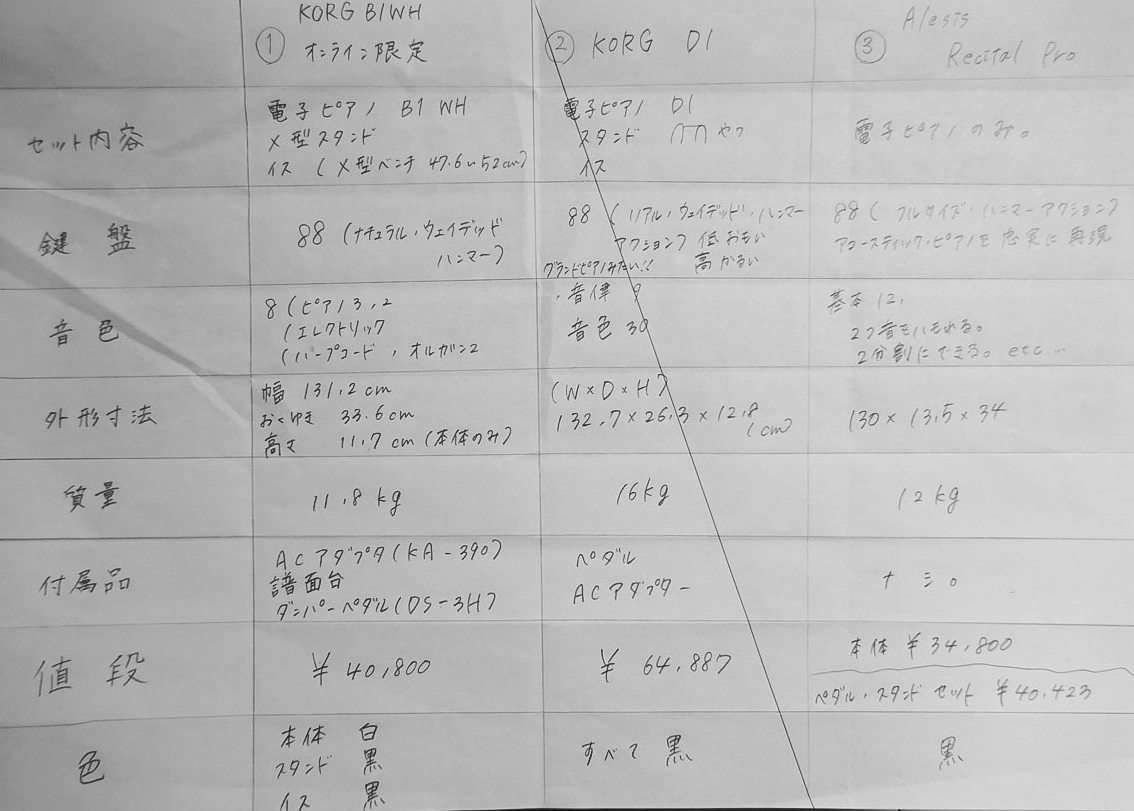 ① KORG B1WH
オンライン限定
② KORG D1
③ Alesis
Recital Pro
セット内容
電子ピアノ B1 WH
X型スタンド
イス (X型ベンチ 47.6〜52cm)
電子ピアノ D1
スタンド ΠΠやつ
イス
電子ピアノのみ。
鍵盤
88 (ナチュラル・ウェイテッド
ハンマー)
88 (リアル・ウェイデッド・ハンマー
アクション) 低 おもい
グランドピアノみたい!! 高 かるい
88 (フルサイズ・ハンマーアクション)
アコースティック・ピアノを忠実に再現
音色
8 (ピアノ3,2
(エレクトリック
(ハープコード, オルガン2
・音律 9
音色 30
基本 12,
2つ音をハモれる。
2分割にできる。etc…
外形寸法
幅 131.2cm
おくゆき 33.6cm
高さ 11.7cm (本体のみ)
(W×D×H)
132.7×26.3×12.8
(cm)
130×13.5×34
質量
11.8kg
16kg
12kg
付属品
ACアダプタ(KA-390)
譜面台
ダンパーペダル(DS-3H)
ペダル
ACアダプター
ナシ。
値段
¥40,800
¥64,887
本体 ¥34,800
ペダル・スタンドセット ¥40,423
色
本体 白
スタンド 黒
イス 黒
すべて 黒
黒